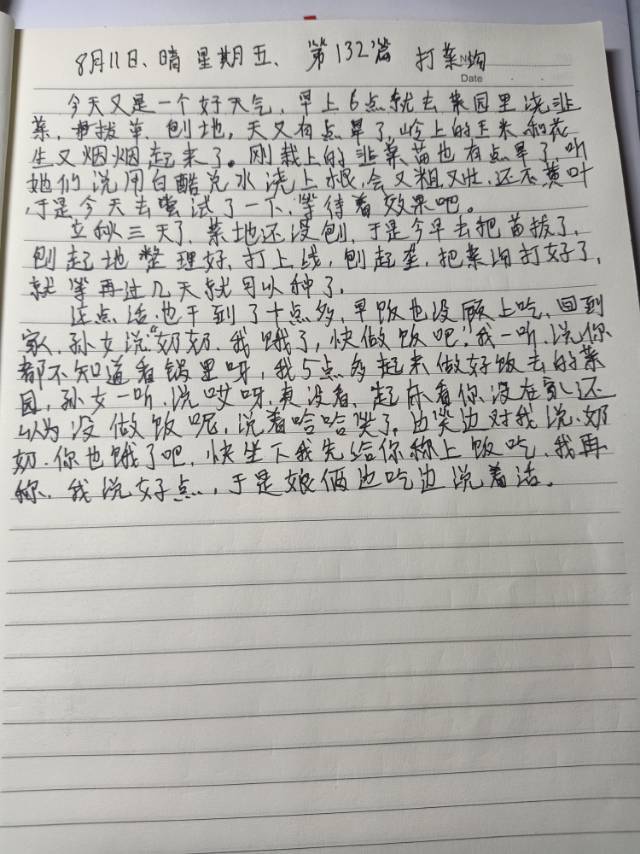 8月11日、晴 星期五、第132篇 打菜沟
Date
今天又是一个好天气，早上6点就去菜园里浇韭
菜，拔草，刨地，天又有点旱了，岭上的玉米和花
生又烟烟起来了。刚栽上的韭菜苗也有点旱了，听
她们说用白醋兑水浇上根，会又粗又壮，还不黄叶
于是今天去尝试了一下，等待着效果吧。
立秋三天了，菜地还没刨，于是今早去把苗拔了，
刨起地整理好，打上线，刨起垄，把菜沟打好了，
就等再过几天就可以种了。
连点活也干到了十点多，早饭也没顾上吃，回到
家，孙女说"奶奶，我饿了，快做饭吧！我一听，说你
都不知道看锅里呀，我5点多起来做好饭去的菜
园，孙女一听，说哎呀，真没看，起床看你没在家还
以为没做饭呢，说着哈哈笑了，边笑边对我说，奶
奶，你也饿了吧，快坐下我先给你称上饭吃，我再
称，我说好点，于是娘俩边吃边说着话。